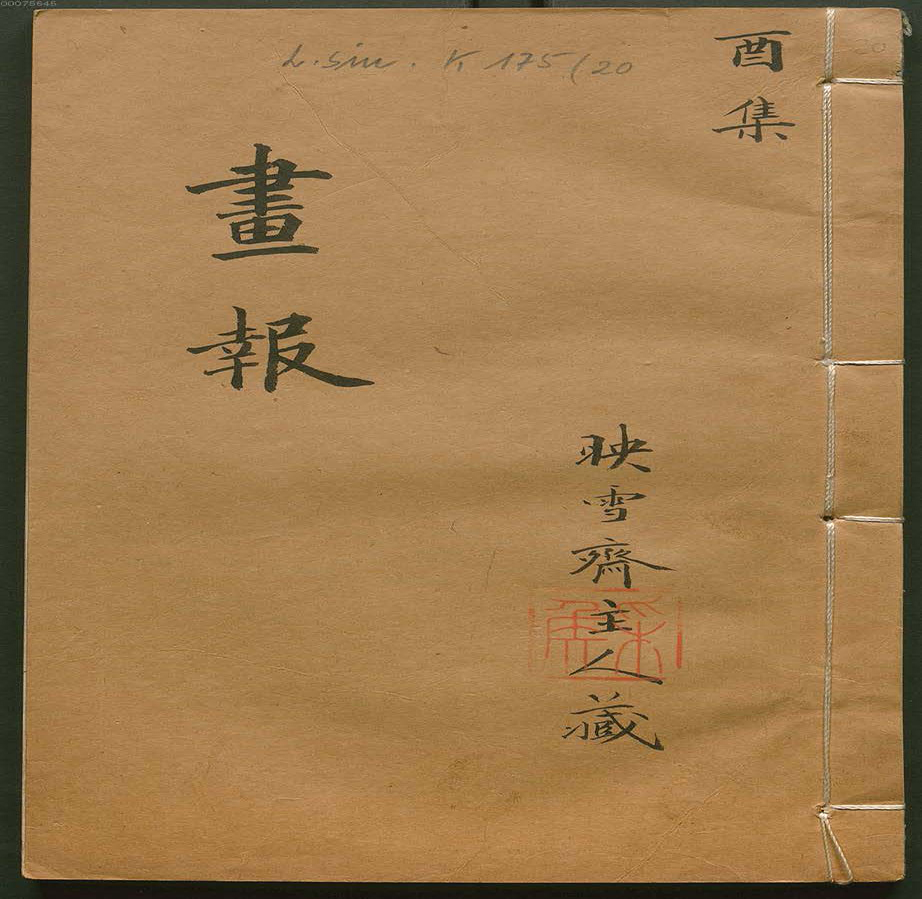 00075645
L. sin. K 175/20
酉集
畫報
映雪齋主人藏